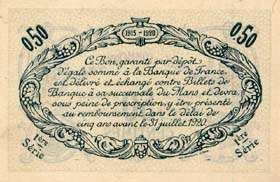 0,50
1915 - 1920
0,50
Ce Bon, garanti par dépôt
d'égale somme à la Banque de France,
est délivré et échangé contre Billets de
Banque à sa succursale du Mans et devra,
sous peine de prescription, y être présenté
au remboursement dans le délai de
cinq ans avant le 31 juillet 1920.
1ère
Série
1ère
Série